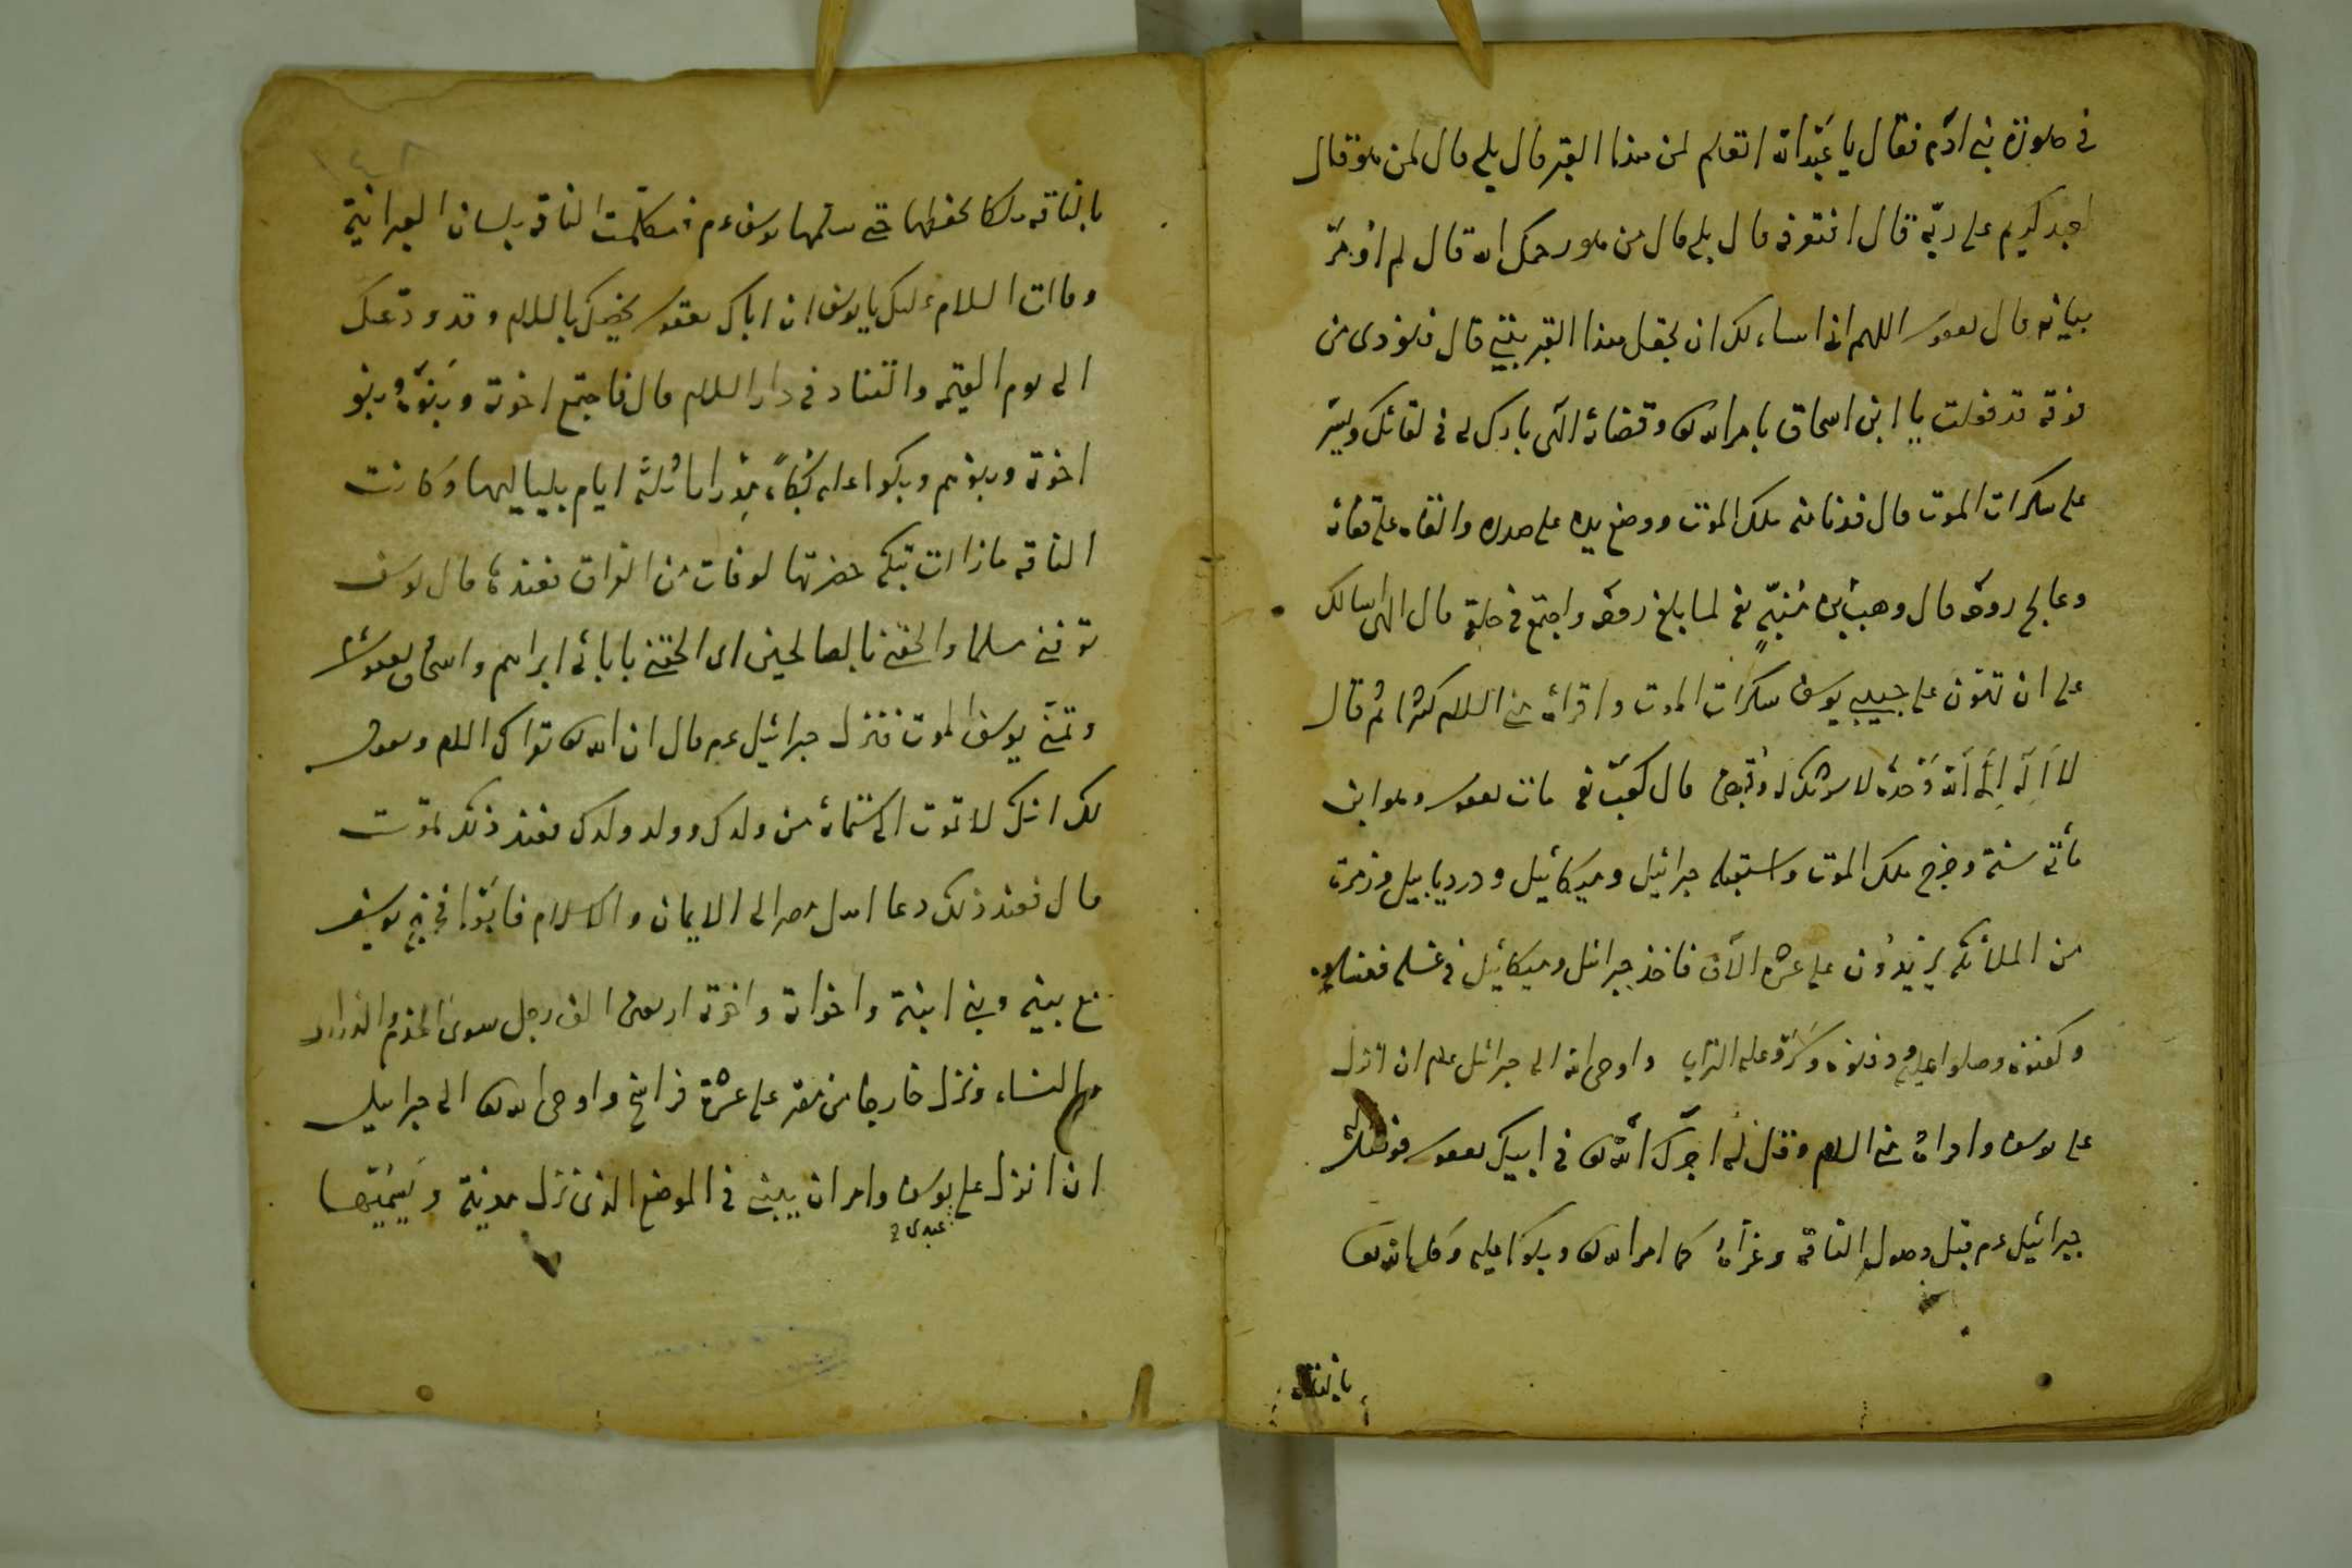 في صورة بني ادم فقال يا عبد الله اتعلم لمن هذا القبر قال بلى قال لمن هو قال
لعبد كريم على ربه قال افتعرفه قال بلى قال من هو رحمك الله قال لم اومر
ببيانه قال يعقوب اللهم اني اساءلك ان تجعل هذا القبر بيتي قال فنودى من
فوقه قد فعلت يا ابن اسحاق بامر الله تع وقضائه الهى بارك لى فى لقائك ويسر
على سكرات الموت قال فدنا منه ملك الموت ووضع يده على صدره والقاه على قفائه
وعالج روحه قال وهب بن منبه رضى لما بلغ روحه واجتمع فى حلقه قال الهى اسالك
على ان تهون على حبيبي يوسف سكرات الموت واقرائه منى السلام كثيرا ثم قال
لا اله الا الله وحده لا شريك له وقبض قال كعب رضى مات يعقوب وهو ابن
مأتى سنة وخرج ملك الموت واستقبله جبرائيل وميكائيل ودرديابيل وزمرة
من الملائكة يزيدون على عشرة الآف فاخذ جبرائيل وميكائيل فى غسله فغسلاه
وكفنوه وصلوا عليه ودفنوه وكروا عليه التراب واوحى الله الى جبرائيل علم ان انزل
على يوسف واقراه منى السلام وقل له اجرك الله تع فى ابيك يعقوب فنزل
جبرائيل عم قبل وصول الناقة وعزاه كما امر الله تع وبكوا عليه وكل الله تع
بالناقة
بالناقة ملكا يحفظها حتى سلمها يوسف عم فتكلمت الناقة بلسان العبرانية
وقالت السلام عليك يا يوسف ان اباك يعقوب يخصك بالسلام وقد ودعك
الى يوم القيمة والتناد فى دار السلام قال فاجتمع اخوته وبنوه وبنو
اخوته وبنوهم وبكوا عليه بكاء مقدار ثلثة ايام بلياليها وكانت
الناقة مازالت تبكى حضرتها لوفات من الفراق فعنده قال يوسف
توفنى مسلما والحقنى بالصالحين اى الحقنى بابائى ابراهيم واسحاق ويعقوب
وتمنى يوسف الموت فنزل جبرائيل عم قال ان الله تع يقرأك السلام ويقول
لك انك لا تموت الى ستمائة من ولدك وولد ولدك فعند ذلك تموت
قال فعند ذلك دعا اهل مصر الى الايمان والاسلام فابوا فخرج يوسف
مع بنيه وبنى ابنته واخواته واخوته اربعين الف رجل سوى الخدم والذرارى
والنساء ونزل خارجا من مصر على عشرة فراسخ واوحى الله تع الى جبرائيل
ان انزل على يوسف وامر ان يبنى فى الموضع الذى نزل مدينة ويسميها
عبدى